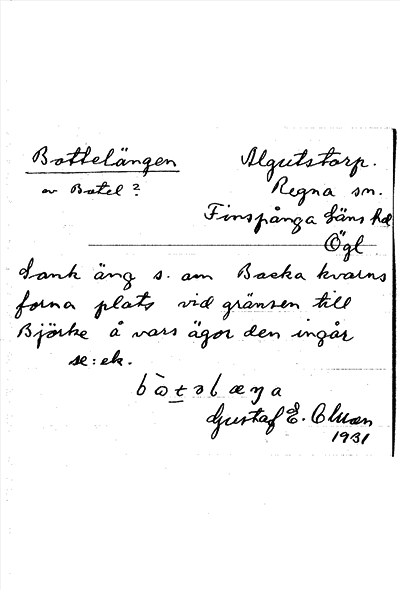 Bottelängen
av Botel?
Algutstorp.
Regna sn.
Finspånga läns hd
Ögl
Sank äng s. om Backa kvarns
forna plats vid gränsen till
Björke å vars ägor den ingår
se: ek.
Gustaf E.
1931